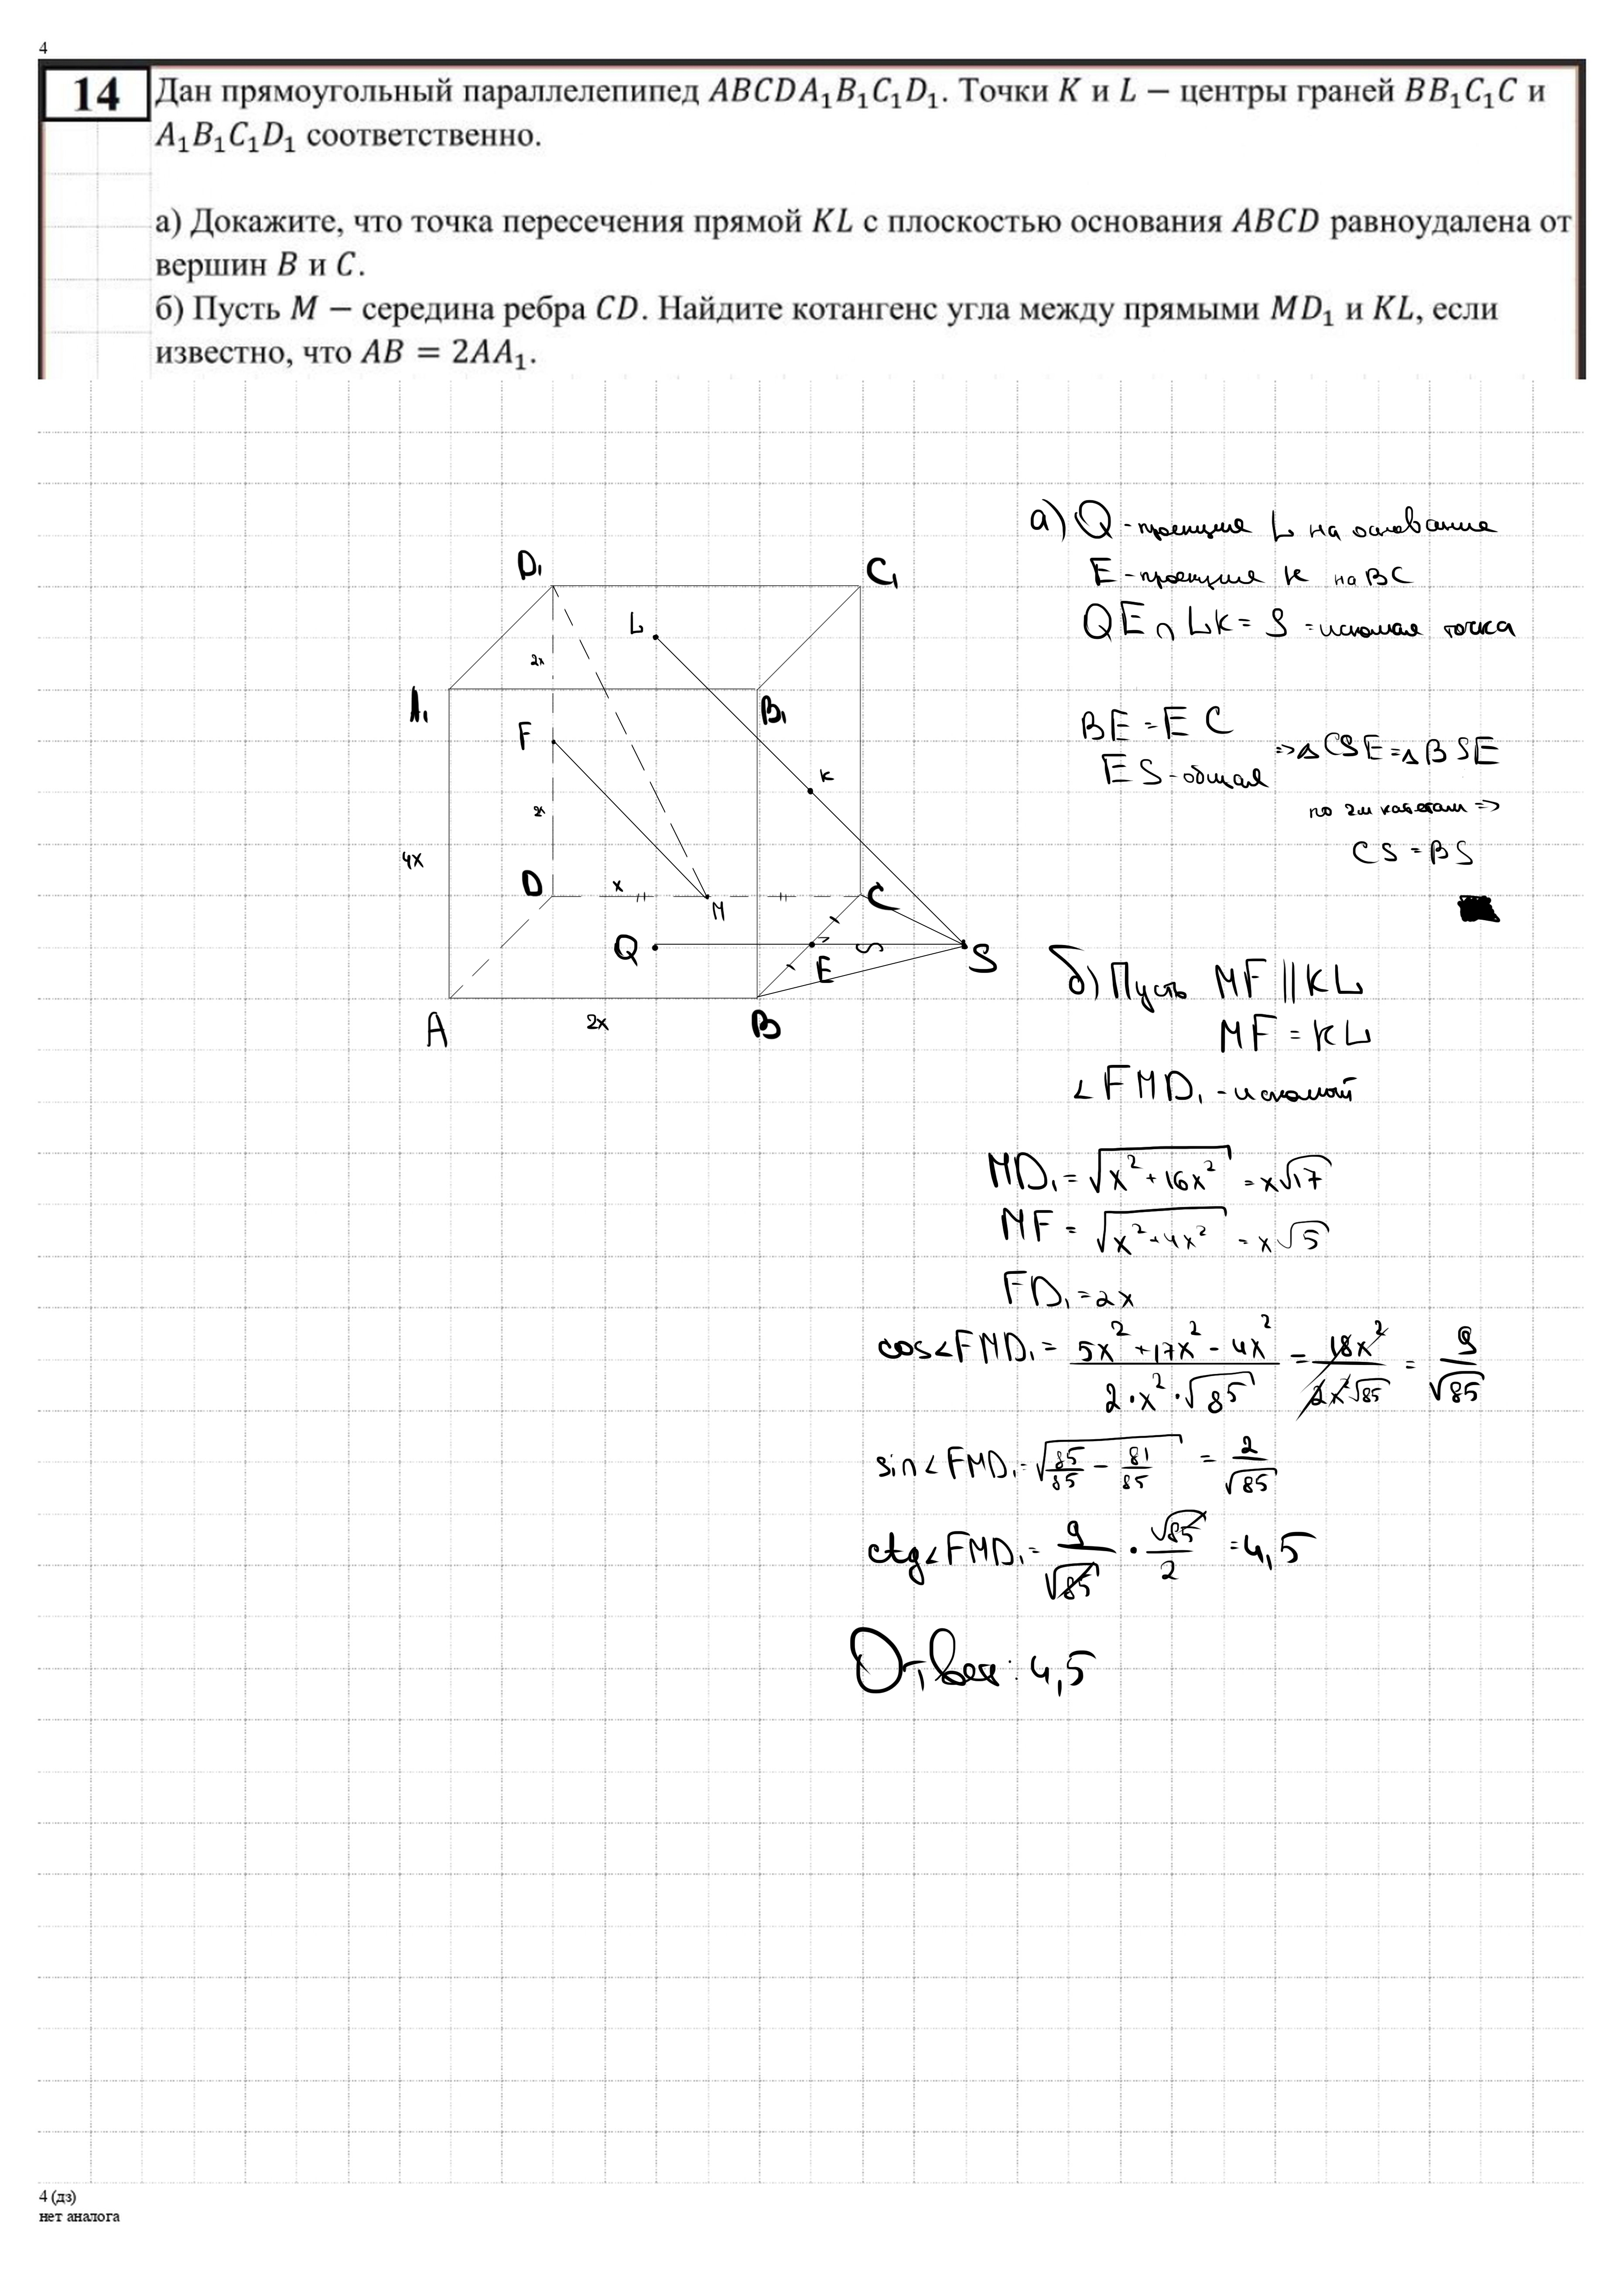 4
14
Дан прямоугольный параллелепипед ABCDA₁B₁C₁D₁. Точки K и L − центры граней BB₁C₁C и
A₁B₁C₁D₁ соответственно.
а) Докажите, что точка пересечения прямой KL с плоскостью основания ABCD равноудалена от
вершин B и C.
б) Пусть M − середина ребра CD. Найдите котангенс угла между прямыми MD₁ и KL, если
известно, что AB = 2AA₁.
а) Q - проекция L на основание
E - проекция K на BC
QE ∩ LK = S - искомая точка
BE = EC
ES - общая
=> △CSE = △BSE
по 2м катетам =>
CS = BS
D₁
C₁
L
2x
A₁
B₁
F
K
2x
4x
D
x
M
C
Q
E
S
A
2x
B
б) Пусть MF || KL
MF = KL
∠FMD₁ - искомый
MD₁ = √(x² + 16x²) = x√17
MF = √(x² + 4x²) = x√5
FD₁ = 2x
cos∠FMD₁ = (5x² + 17x² - 4x²)/(2·x²·√85) = 18x²/(2x²√85) = 9/√85
sin∠FMD₁ = √(85/85 − 81/85) = 2/√85
ctg∠FMD₁ = 9/√85 · √85/2 = 4,5
Ответ: 4,5
4 (дз)
нет аналога